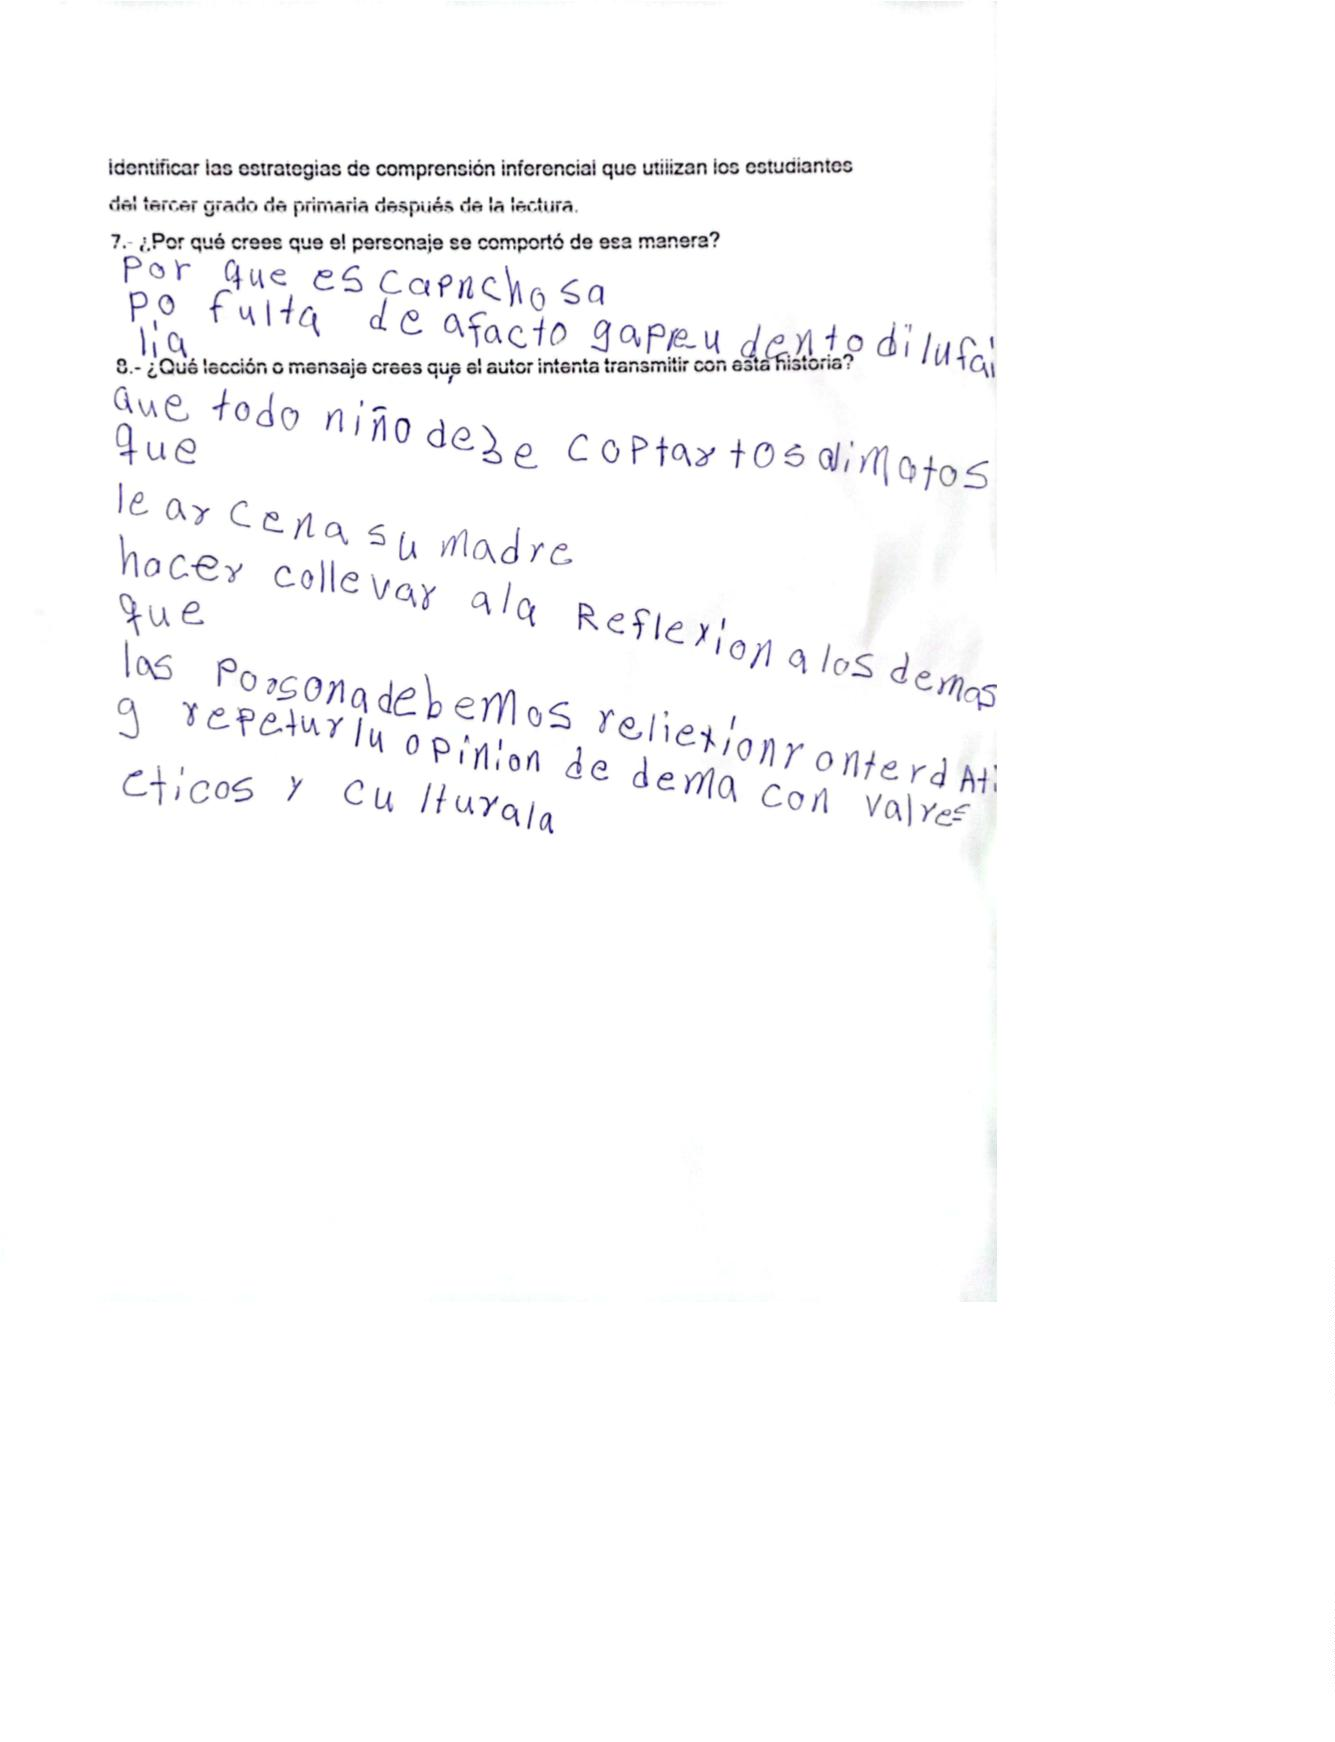 identificar las estrategias de comprensión inferencial que utilizan los estudiantes
del tercer grado de primaria después de la lectura.
7.- ¿Por qué crees que el personaje se comportó de esa manera?
Por que es capnchosa
po fulta de afacto gapreu dento di lufai
lia
8.- ¿Qué lección o mensaje crees que el autor intenta transmitir con esta historia?
que todo niño debe coptar tos alimatos
que
le ar cena su madre
hacer collevar ala Reflexion a los demas
que
las porsona debemos reliexionr onterd Ati
g repetur lu opinion de dema con valres
eticos y culturala